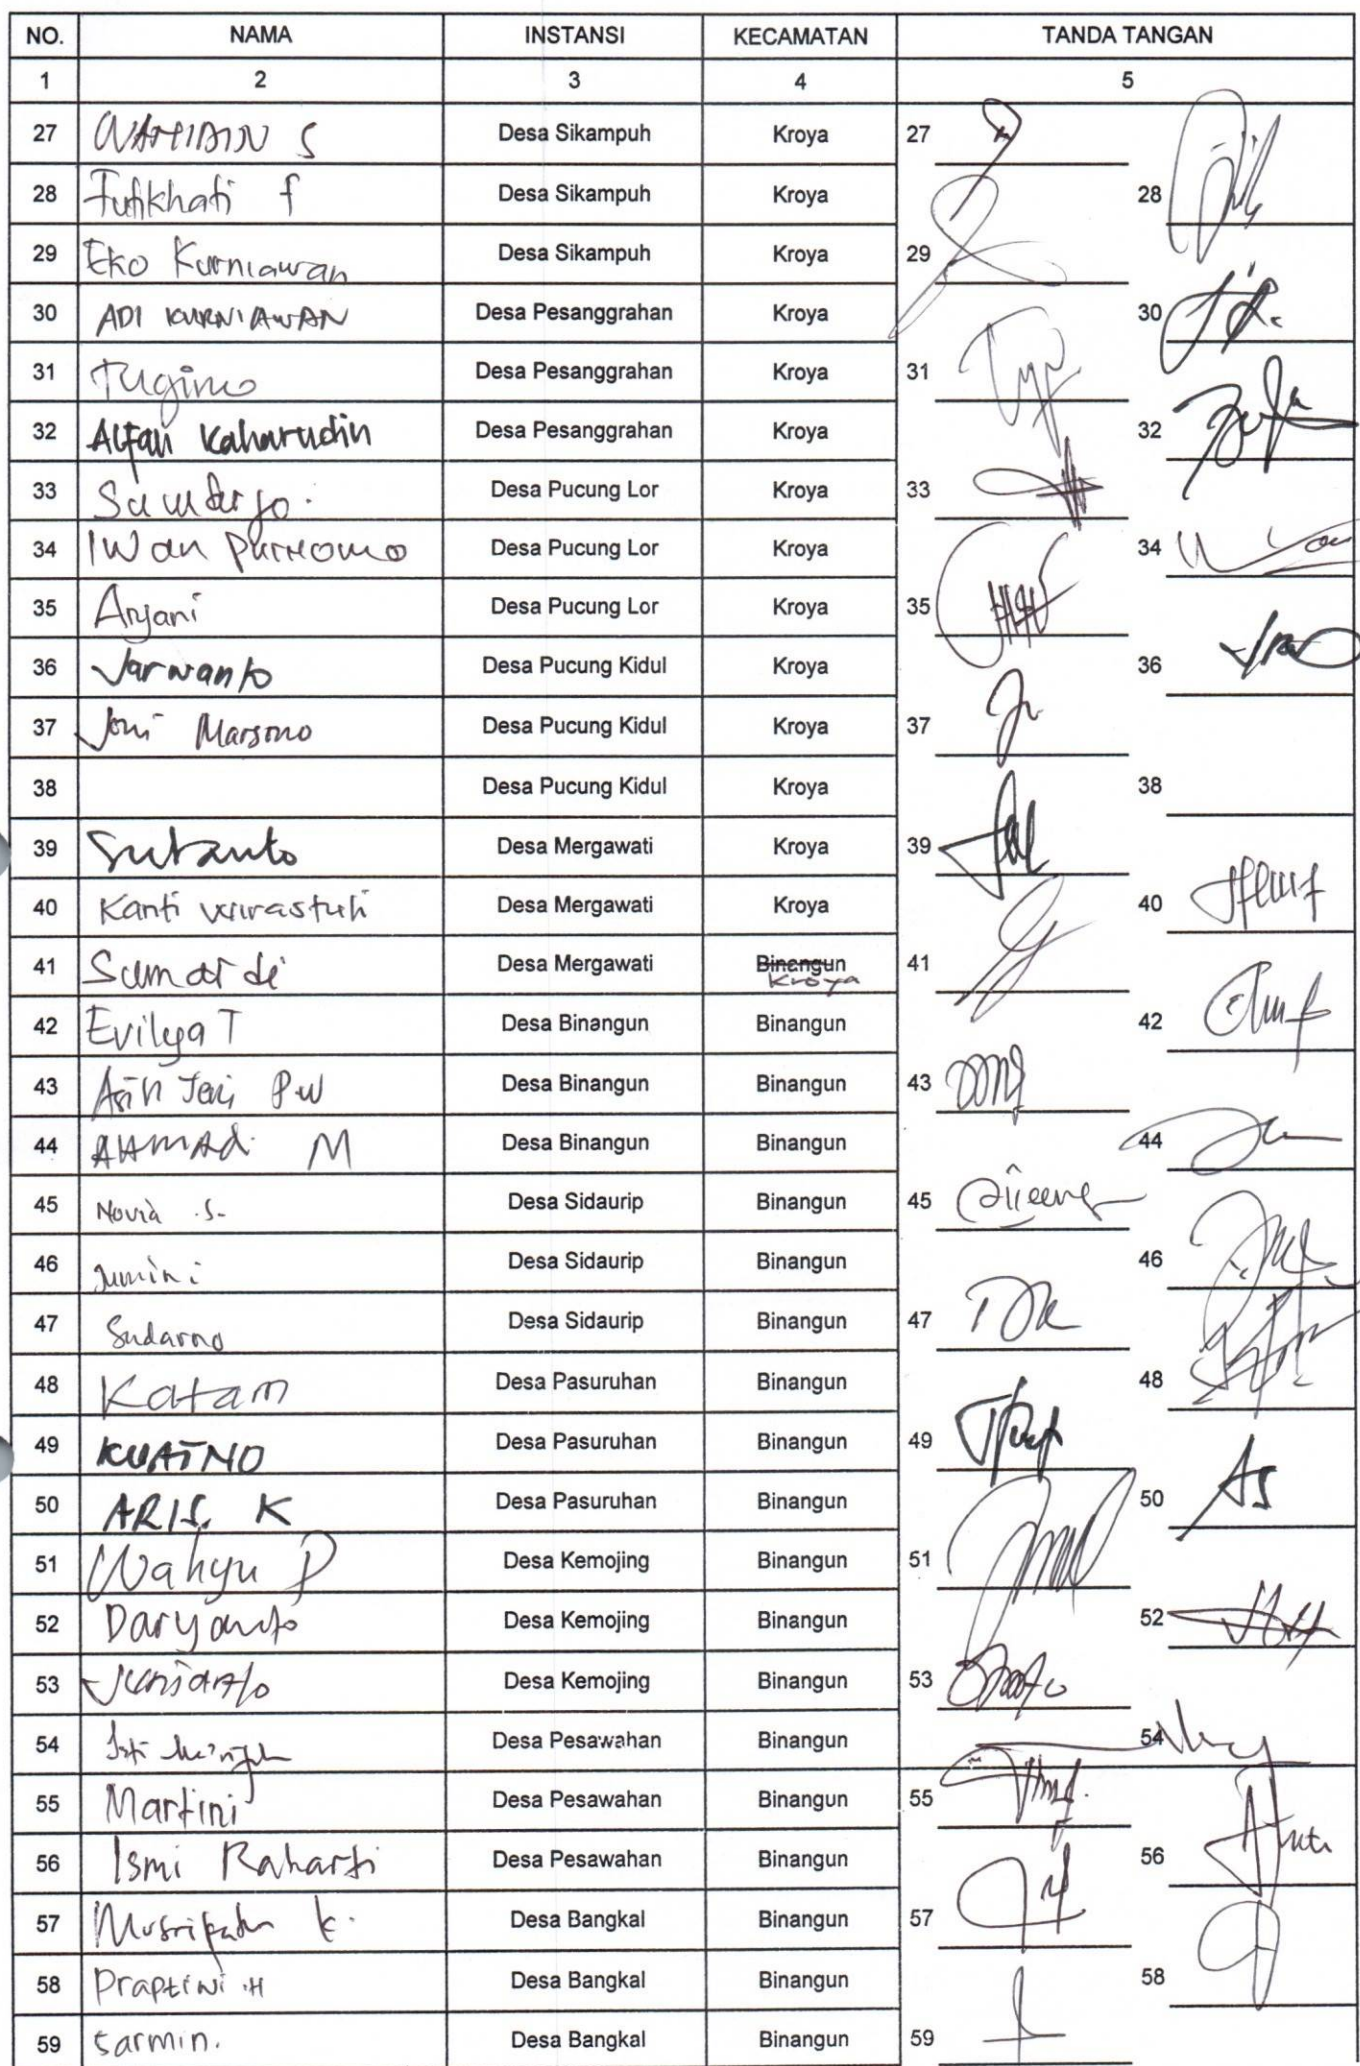 NO. NAMA INSTANSI KECAMATAN TANDA TANGAN
1 2 3 4 5
27 WAHIDIN S Desa Sikampuh Kroya 27
28 Futikhati f Desa Sikampuh Kroya 28
29 Eko Kurniawan Desa Sikampuh Kroya 29
30 ADI KURNIAWAN Desa Pesanggrahan Kroya 30
31 Tugimo Desa Pesanggrahan Kroya 31
32 Alfan Kaharudin Desa Pesanggrahan Kroya 32
33 Desa Pucung Lor Kroya 33
34 IWan Purnomo Desa Pucung Lor Kroya 34
35 Aryani Desa Pucung Lor Kroya 35
36 Jarwanto Desa Pucung Kidul Kroya 36
37 Joni Marsono Desa Pucung Kidul Kroya 37
38 Desa Pucung Kidul Kroya 38
39 Sutanto Desa Mergawati Kroya 39
40 Kanti Desa Mergawati Kroya 40
41 Sumardi Desa Mergawati Binangun 41
Kroya
42 Evilya T Desa Binangun Binangun 42
43 Asih P.W Desa Binangun Binangun 43
44 AHMAd M Desa Binangun Binangun 44
45 Novia .S. Desa Sidaurip Binangun 45
46 Jumini Desa Sidaurip Binangun 46
47 Sudarno Desa Sidaurip Binangun 47
48 Katam Desa Pasuruhan Binangun 48
49 KUATNO Desa Pasuruhan Binangun 49
50 ARIS. K Desa Pasuruhan Binangun 50 AS
51 Wahyu P Desa Kemojing Binangun 51
52 Daryanto Desa Kemojing Binangun 52
53 Desa Kemojing Binangun 53
54 Desa Pesawahan Binangun 54
55 Martini Desa Pesawahan Binangun 55
56 Ismi Raharti Desa Pesawahan Binangun 56
57 k. Desa Bangkal Binangun 57
58 Praptini .H Desa Bangkal Binangun 58
59 Sarmin. Desa Bangkal Binangun 59